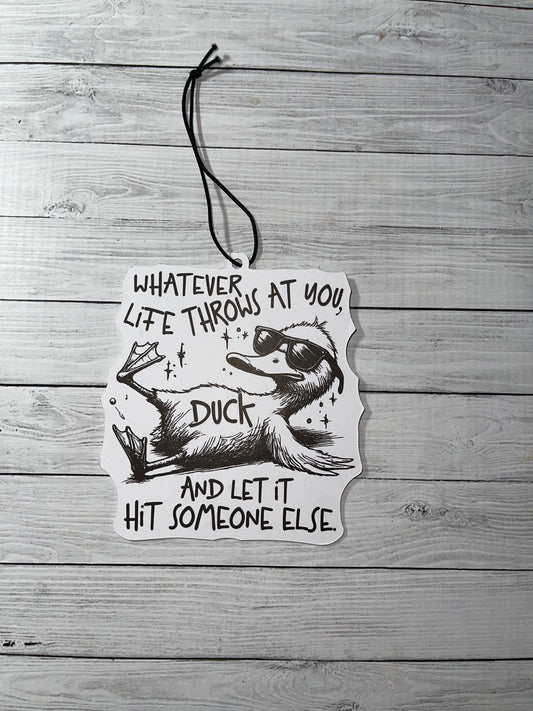 WHATEVER
LIFE THROWS AT YOU,
DUCK
AND LET IT
HIT SOMEONE ELSE.